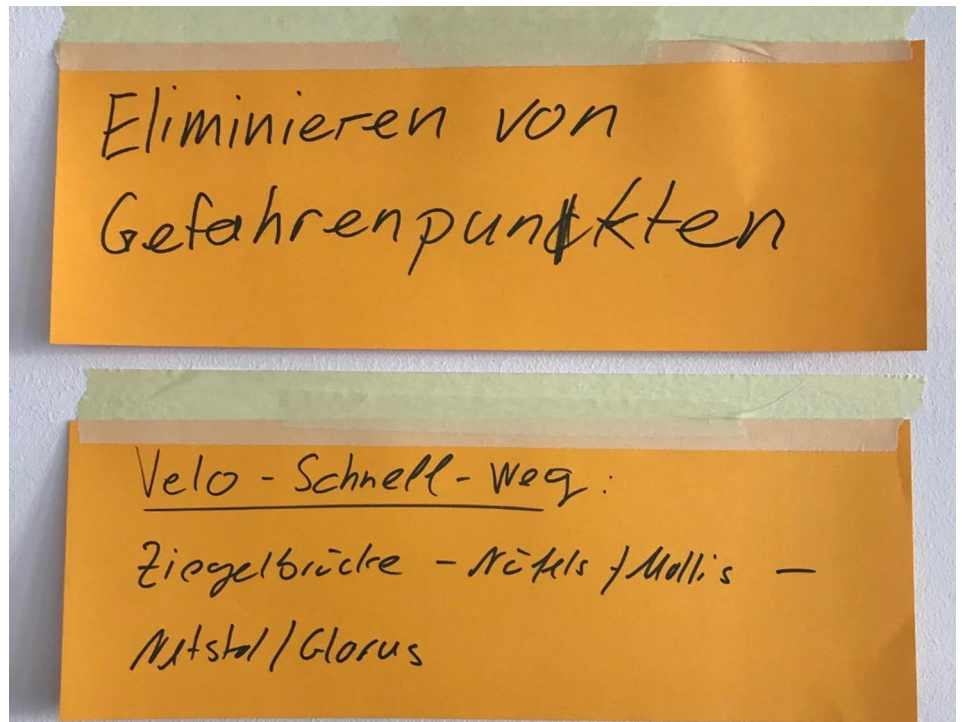 Eliminieren von
Gefahrenpunkten
Velo - Schnell - Weg:
Ziegelbrücke - Näfels / Mollis -
Netstal / Glarus